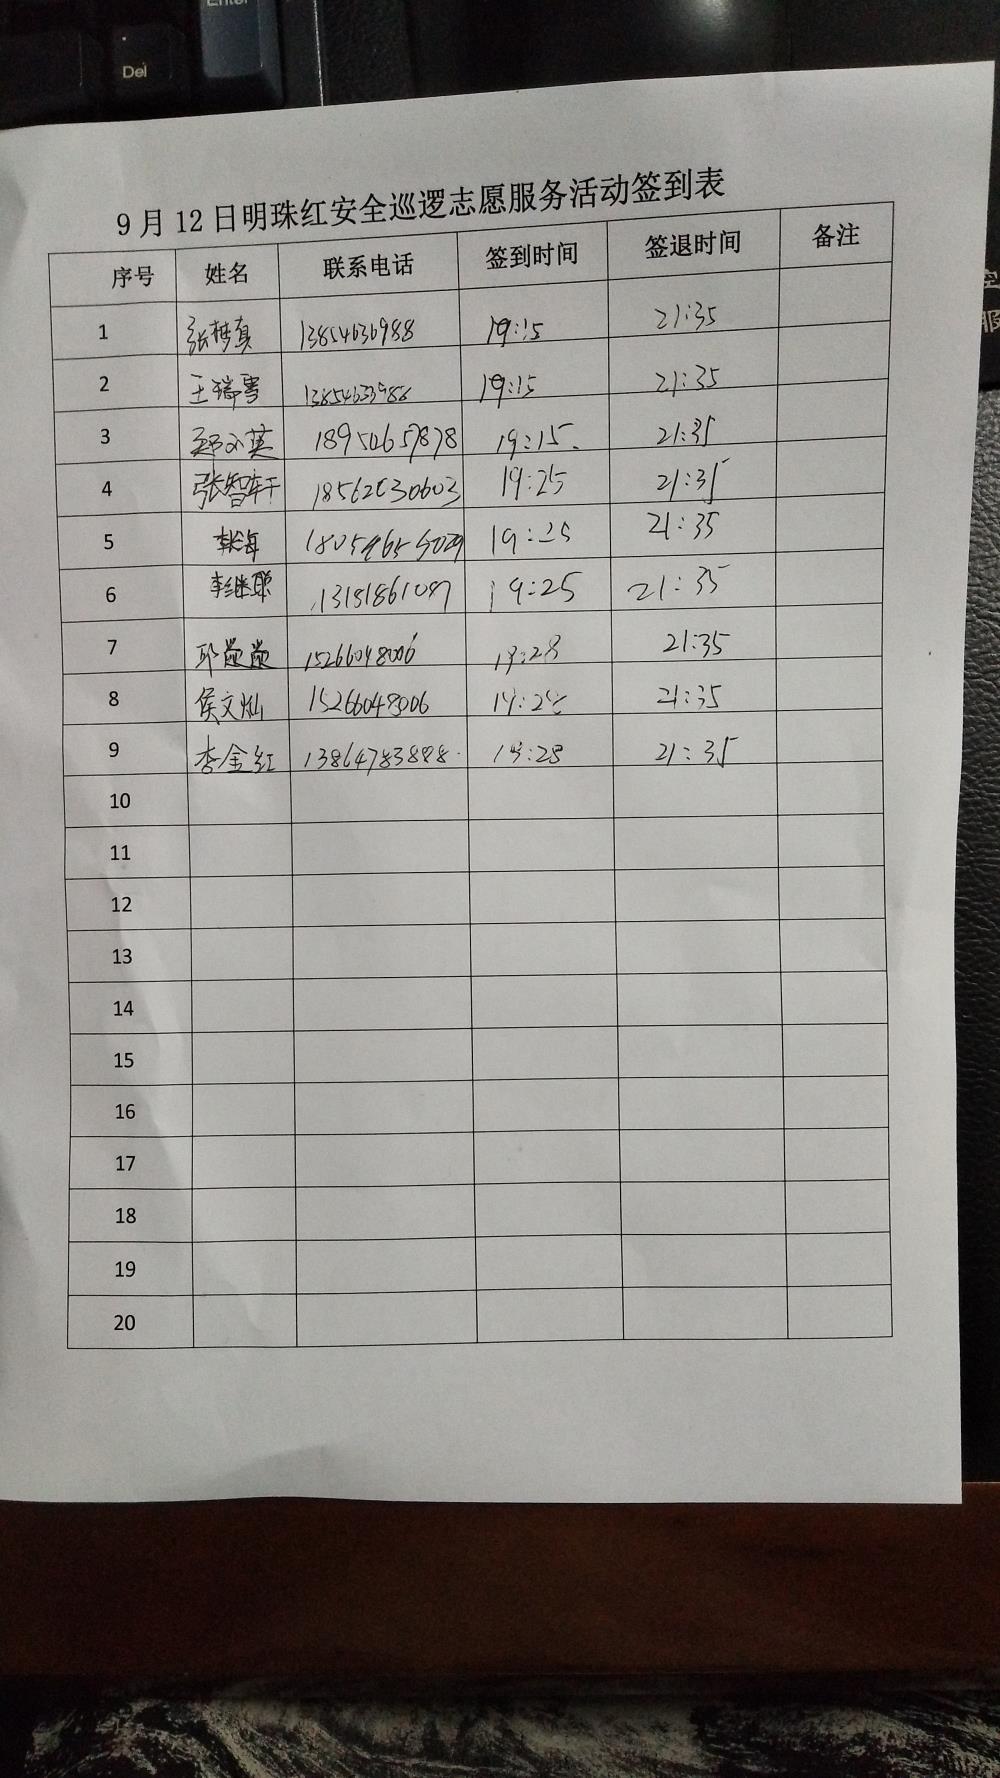 Enter
Del
9月12日明珠红安全巡逻志愿服务活动签到表
序号 姓名 联系电话 签到时间 签退时间 备注
1 张梦真 13854636988 19:15 21:35
2 王瑞雪 19:15 21:35
3 19:15 21:35
4 张智轩 19:25 21:35
5 19:25 21:35
6 李继聪 19:25 21:35
7 15266048006 19:28 21:35
8 侯文灿 15266048006 21:35
9 李金红 13864783888 19:28 21:35
10
11
12
13
14
15
16
17
18
19
20